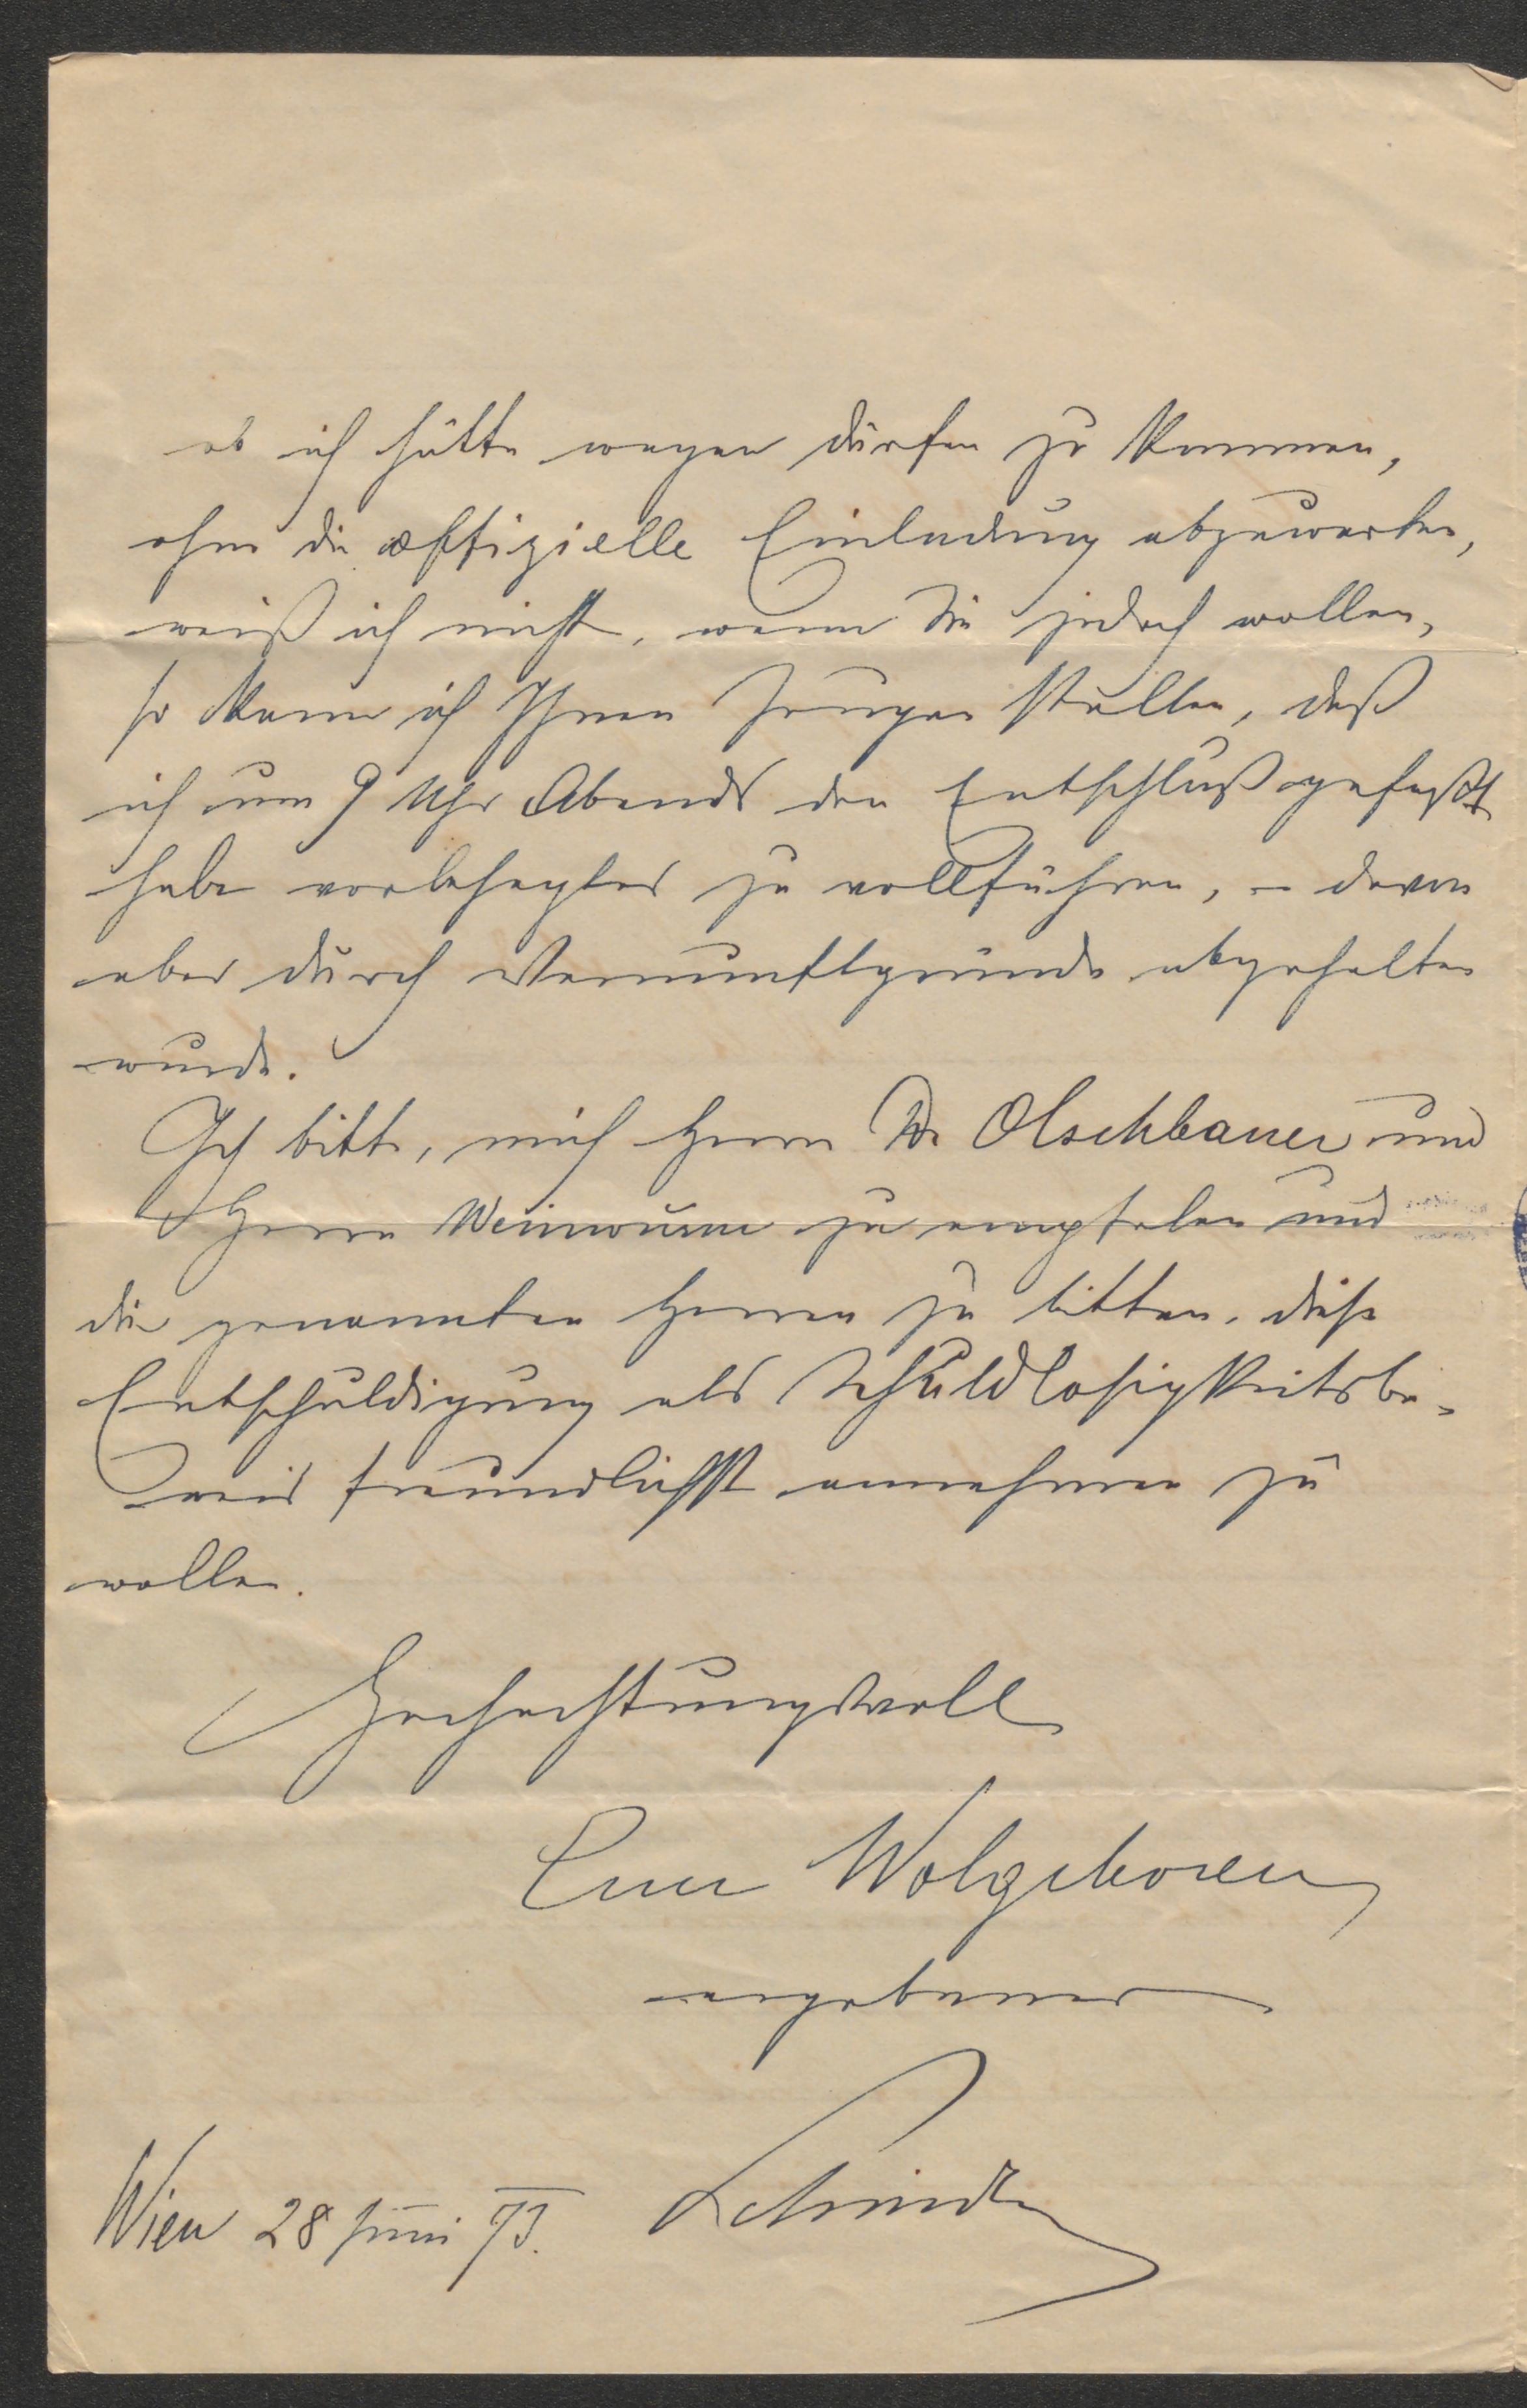 ob ich hätte wagen dürfen zu kommen,
ohne die offizielle Einladung abzuwarten,
weiß ich nicht, wenn Sie jedoch wollen,
so kann ich Ihnen Zeugen stellen, daß
ich um 9 Uhr Abends den Entschluß gefaßt
habe vorbesagtes zu vollführen, – davon
aber durch Vernunftgründe abgehalten
wurde.
Ich bitte, mich Herrn Dr Olschbauer und
Herrn Weinwurm zu empfelen und
die genannten Herren zu bitten, diese
Entschuldigung als Schuldlosigkeitsbe-
weis freundlichst annehmen zu
wollen.
Hochachtungsvoll
Euer Wolgeboren
ergebener
Schindler
Wien 28 Juni 73.